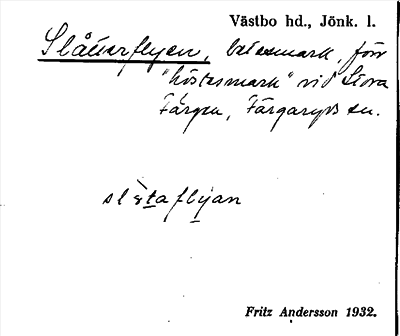 Västbo hd., Jönk. l.
Slåtterflyen, betesmark, förr
"höstesmark" vid Stora
Färgen, Färgaryds sn.
slåtaflyan
Fritz Andersson 1932.